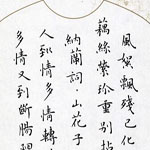 風絮飄殘已化
藕絲縈珍重別拈
納蘭詞·山花子
人到情多情轉
多情又到斷腸